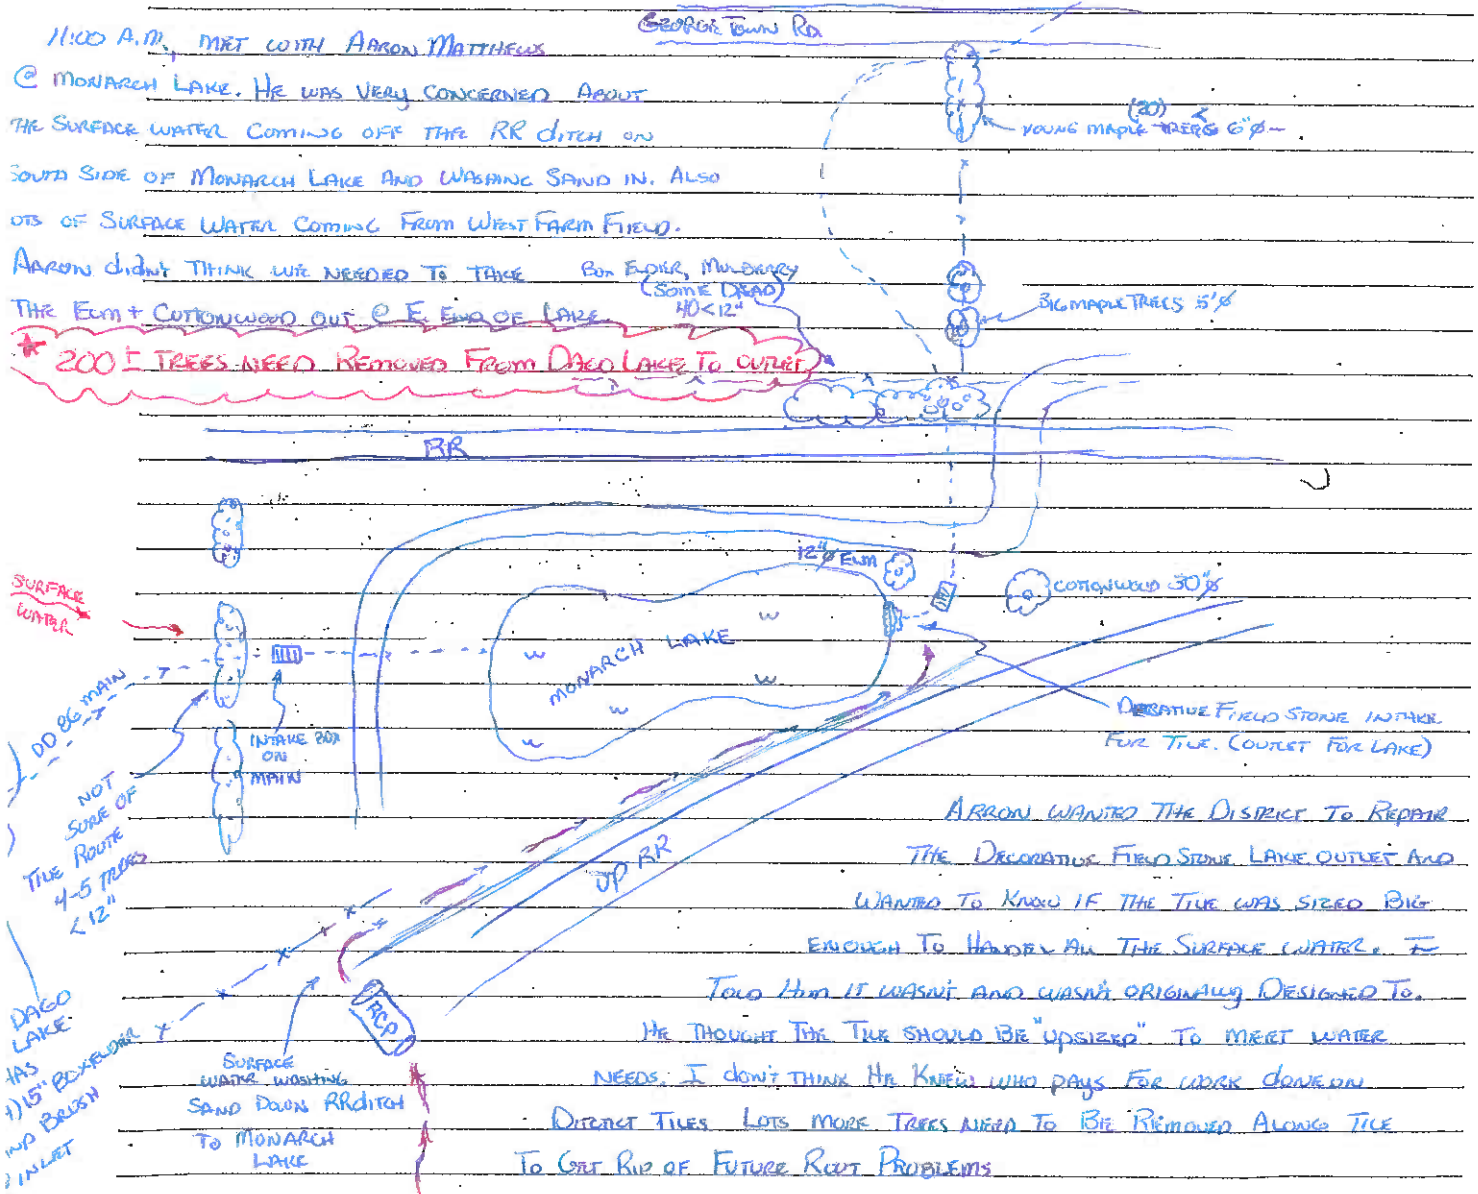 GEORGETOWN RD
11:00 A.M., MET WITH AARON MATTHEWS
@ MONARCH LAKE. HE WAS VERY CONCERNED ABOUT
THE SURFACE WATER COMING OFF THE RR DITCH ON
SOUTH SIDE OF MONARCH LAKE AND WASHING SAND IN. ALSO
OTS OF SURFACE WATER COMING FROM WEST FARM FIELD.
AARON didn't THINK WE NEEDED TO TAKE
THE ELM + COTTONWOOD OUT @ E. END OF LAKE.
* 200 ± TREES NEED REMOVED FROM DAGO LAKE TO OUTLET
(20) <
YOUNG MAPLE TREES 6"Ø
BOX ELDER, MULBERRY
(SOME DEAD)
40 < 12"
BIG MAPLE TREES 5'Ø
RR
12"Ø ELM
COTTONWOOD 30"Ø
SURFACE
WATER
MONARCH LAKE
W
W
W
W
W
DD 86 MAIN
INTAKE BOX
ON
MAIN
NOT
SURE OF
TILE ROUTE
4-5 TREES
< 12"
FIELD STONE INTAKE
FOR TILE. (OUTLET FOR LAKE)
UP RR
RCP
DAGO
LAKE
HAS
) 15" BOXELDER
AND BRUSH
INLET
SURFACE
WATER WASHING
SAND DOWN RR DITCH
TO MONARCH
LAKE
ARRON WANTED THE DISTRICT TO REPAIR
THE DECORATIVE FIELD STONE LAKE OUTLET AND
WANTED TO KNOW IF THE TILE WAS SIZED BIG
ENOUGH TO HANDEL ALL THE SURFACE WATER. I
TOLD HIM IT WASN'T AND WASN'T ORIGINALLY DESIGNED TO.
HE THOUGHT THE TILE SHOULD BE "UPSIZED" TO MEET WATER
NEEDS. I don't THINK HE KNEW WHO PAYS FOR WORK done on
DISTRICT TILES LOTS MORE TREES NEED TO BE REMOVED ALONG TILE
TO GET RID OF FUTURE ROOT PROBLEMS